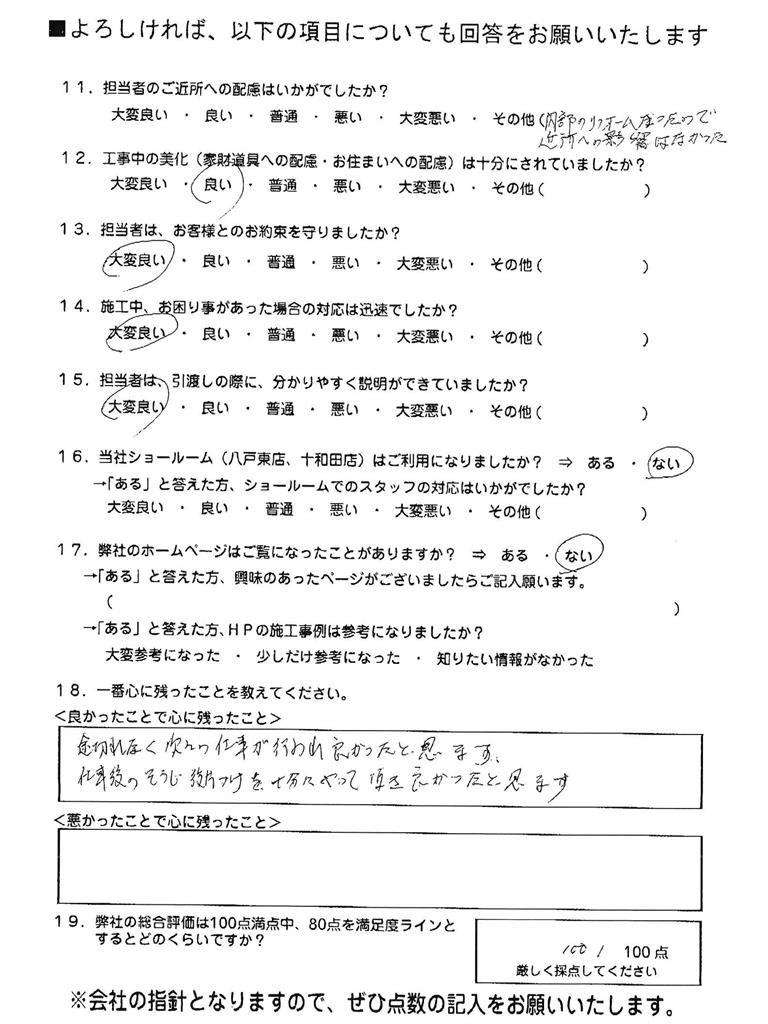 ■よろしければ、以下の項目についても回答をお願いいたします
11．担当者のご近所への配慮はいかがでしたか？
大変良い ・ 良い ・ 普通 ・ 悪い ・ 大変悪い ・ その他（内部のリフォームだったので
近所への影響はなかった
12．工事中の美化（家財道具への配慮・お住まいへの配慮）は十分にされていましたか？
大変良い ・ 良い ・ 普通 ・ 悪い ・ 大変悪い ・ その他（ ）
13．担当者は、お客様とのお約束を守りましたか？
大変良い ・ 良い ・ 普通 ・ 悪い ・ 大変悪い ・ その他（ ）
14．施工中、お困り事があった場合の対応は迅速でしたか？
大変良い ・ 良い ・ 普通 ・ 悪い ・ 大変悪い ・ その他（ ）
15．担当者は、引渡しの際に、分かりやすく説明ができていましたか？
大変良い ・ 良い ・ 普通 ・ 悪い ・ 大変悪い ・ その他（ ）
16．当社ショールーム（八戸東店、十和田店）はご利用になりましたか？ ⇒ ある ・ ない
→「ある」と答えた方、ショールームでのスタッフの対応はいかがでしたか？
大変良い ・ 良い ・ 普通 ・ 悪い ・ 大変悪い ・ その他（ ）
17．弊社のホームページはご覧になったことがありますか？ ⇒ ある ・ ない
→「ある」と答えた方、興味のあったページがございましたらご記入願います。
（ ）
→「ある」と答えた方、HPの施工事例は参考になりましたか？
大変参考になった ・ 少しだけ参考になった ・ 知りたい情報がなかった
18．一番心に残ったことを教えてください。
＜良かったことで心に残ったこと＞
途切れなく次々の仕事が行われ良かったと思います、
仕事後のそうじ後片つけを十分にやって頂き良かったと思ます
＜悪かったことで心に残ったこと＞
19．弊社の総合評価は100点満点中、80点を満足度ラインと
するとどのくらいですか？
100 / 100点
厳しく採点してください
※会社の指針となりますので、ぜひ点数の記入をお願いいたします。